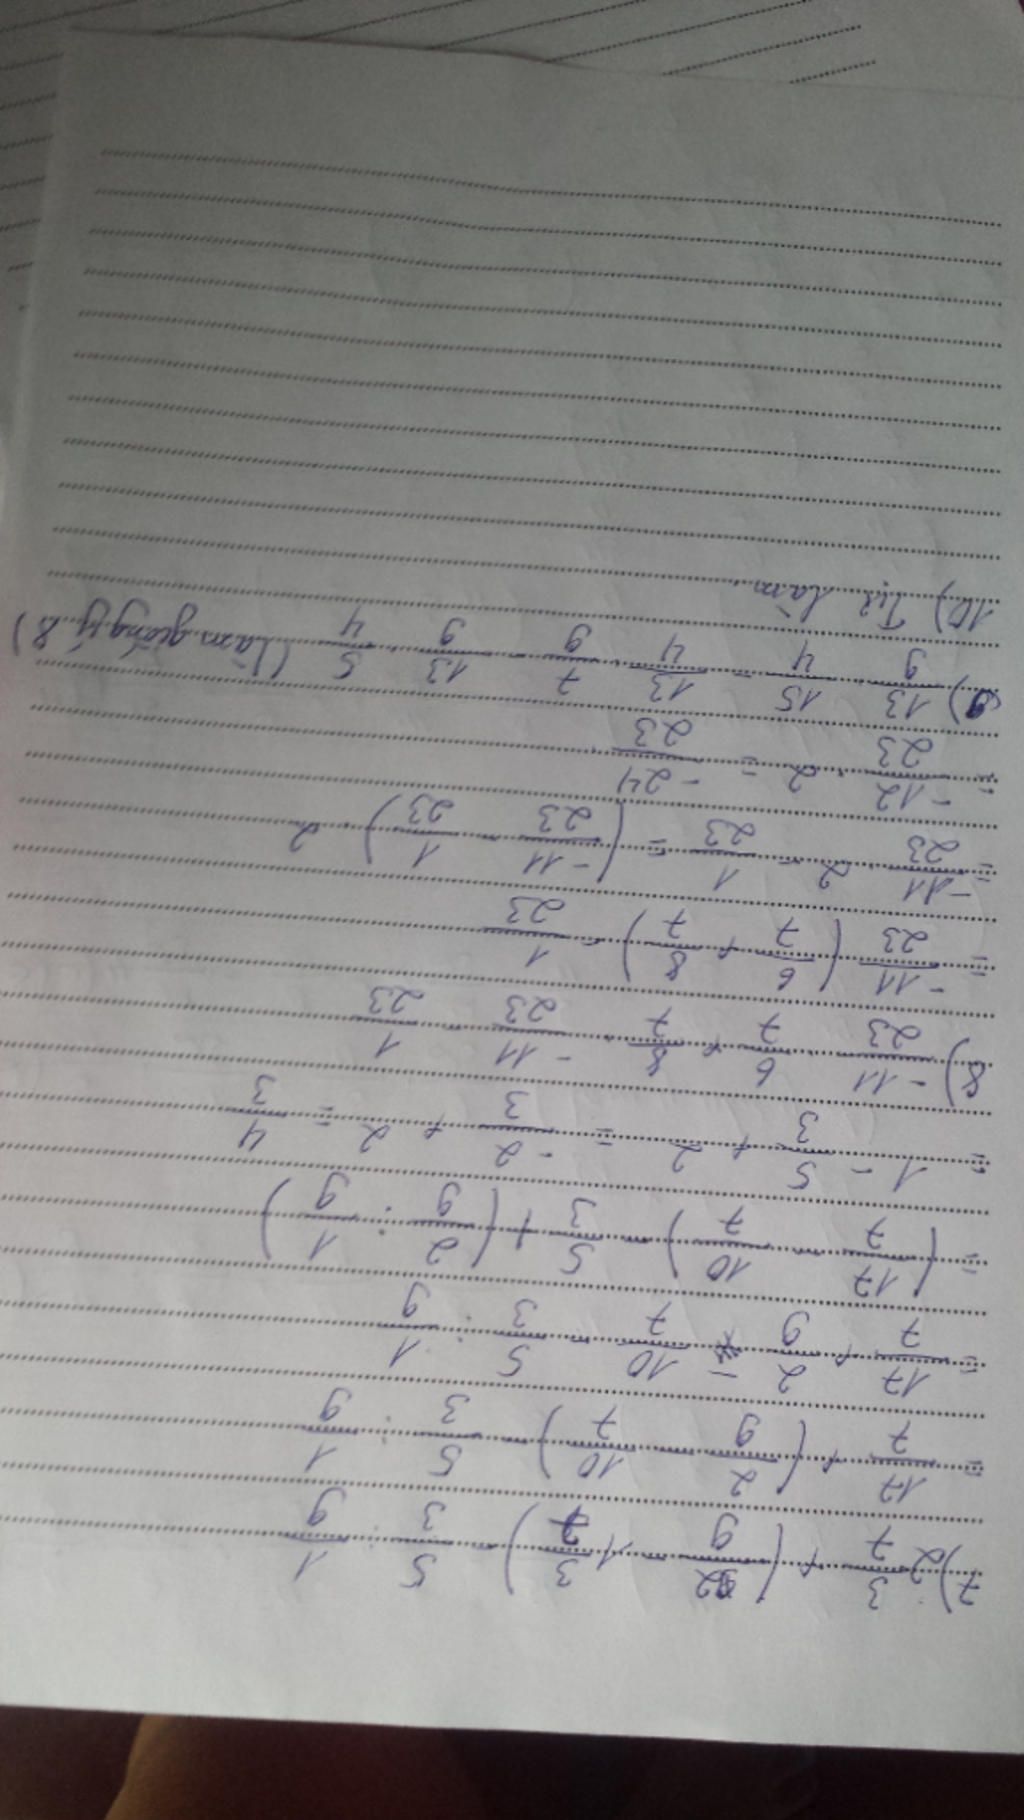 7) 2 3/7 + (2/9 - 1 3/7) - 5/3 : 1/9
= 17/7 + (2/9 - 10/7) - 5/3 : 1/9
= 17/7 + 2/9 - 10/7 - 5/3 : 1/9
= (17/7 - 10/7) - 5/3 + (2/9 : 1/9)
= 1 - 5/3 + 2 = -2/3 + 2 = 4/3
8) -11/23 . 6/7 + 8/7 . -11/23 - 1/23
= -11/23 (6/7 + 8/7) - 1/23
= -11/23 . 2 - 1/23 = (-11/23 - 1/23) . 2
= -12/23 . 2 = -24/23
9) 13/9 . 15/4 - 13/4 . 7/9 - 13/9 . 5/4 (làm giống ý 8)
10) Tự làm.